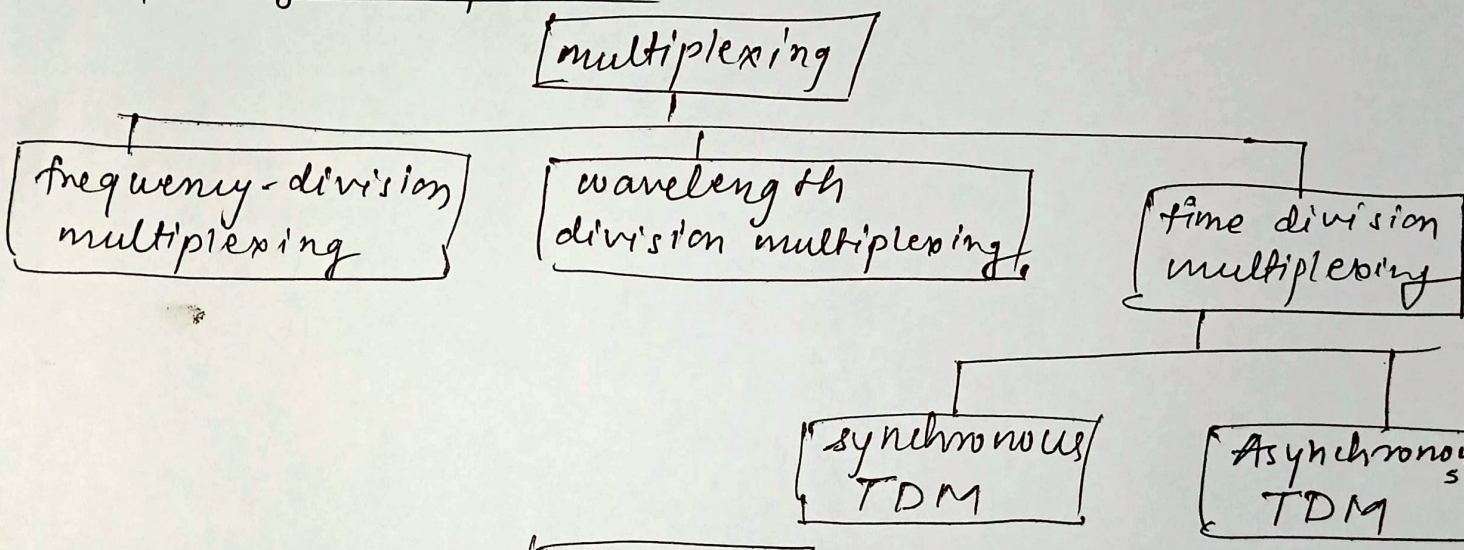 multiplexing
frequency-division
multiplexing
wavelength
division multiplexing
time division
multiplexing
synchronous
TDM
Asynchronous
TDM